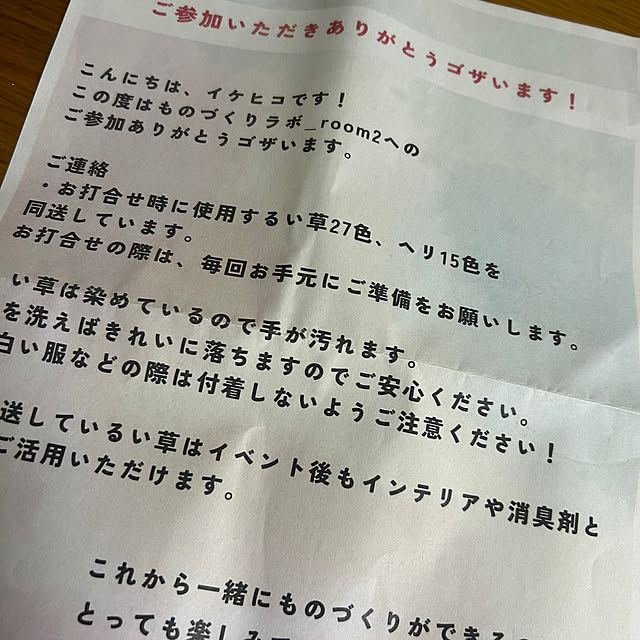 ご参加いただきありがとうゴザいます！
こんにちは、イケヒコです！
この度はものづくりラボ_room2への
ご参加ありがとうゴザいます。
ご連絡
・お打合せ時に使用するい草27色、ヘリ15色を
同送しています。
お打合せの際は、毎回お手元にご準備をお願いします。
い草は染めているので手が汚れます。
を洗えばきれいに落ちますのでご安心ください。
白い服などの際は付着しないようご注意ください！
送しているい草はイベント後もインテリアや消臭剤と
ご活用いただけます。
これから一緒にものづくりができる
とっても楽しみ